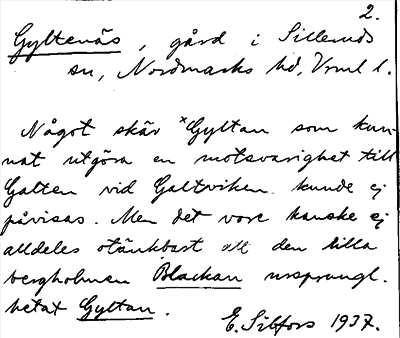 2.
Gyltenäs, gård i Sillerud
sn, Nordmarks hd, Vrml l.
Något skär ˣGyltan som kun-
nat utgöra en motsvarighet till
Galten vid Galtviken kunde ej
påvisas. Men det vore kanske ej
alldeles otänkbart att den lilla
bergholmen Blackan ursprungl.
hetat Gyltan.
E. Sibfors 1937.